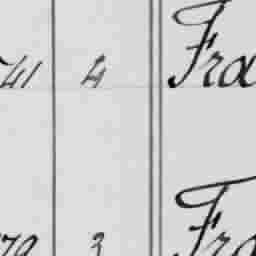 41 4 Fra
79 3 Fra